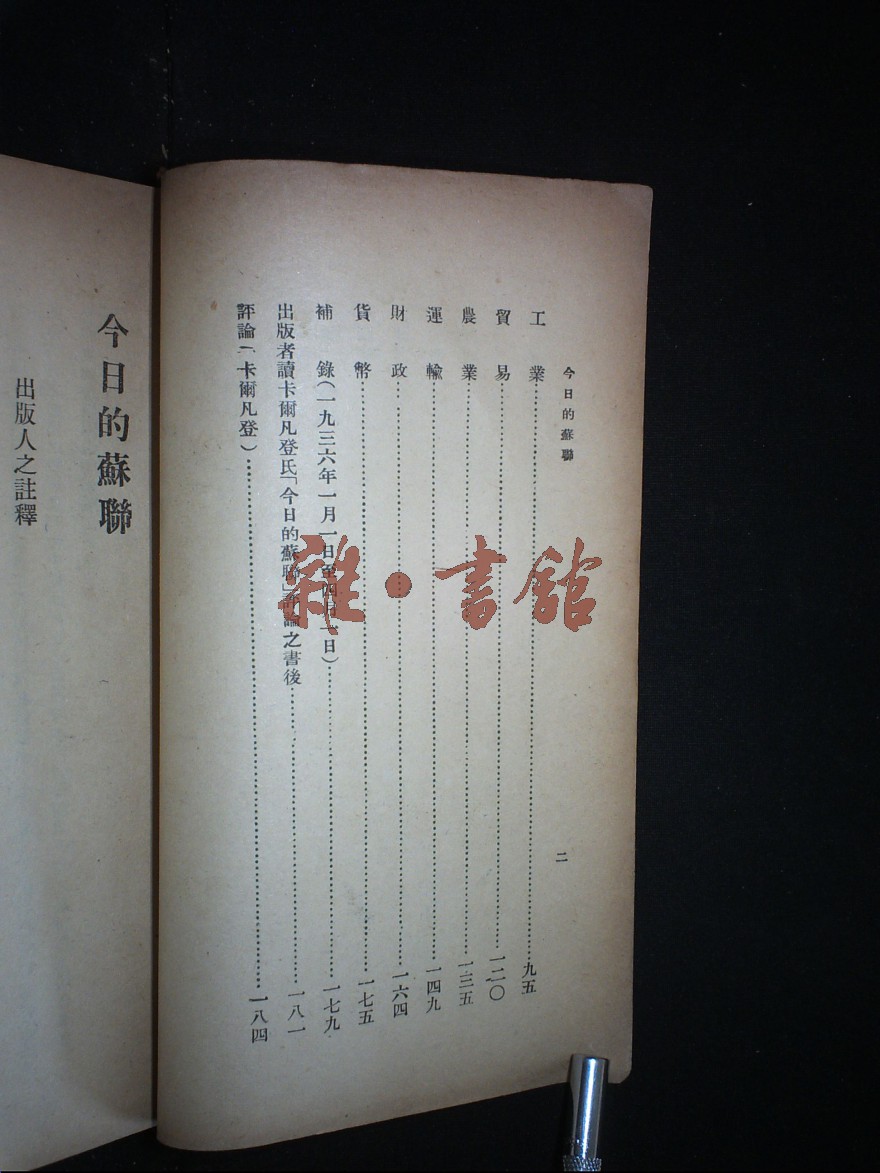 今日的蘇聯
二
工業……九五
貿易……一二〇
農業……一三五
運輸……一四九
財政……一六四
貨幣……一七五
補錄（一九三六年一月一日至四月一日）……一七九
出版者讀卡爾凡登氏「今日的蘇聯」評論之書後……一八一
評論（卡爾凡登）……一八四
今日的蘇聯
出版人之註釋
雜·書館